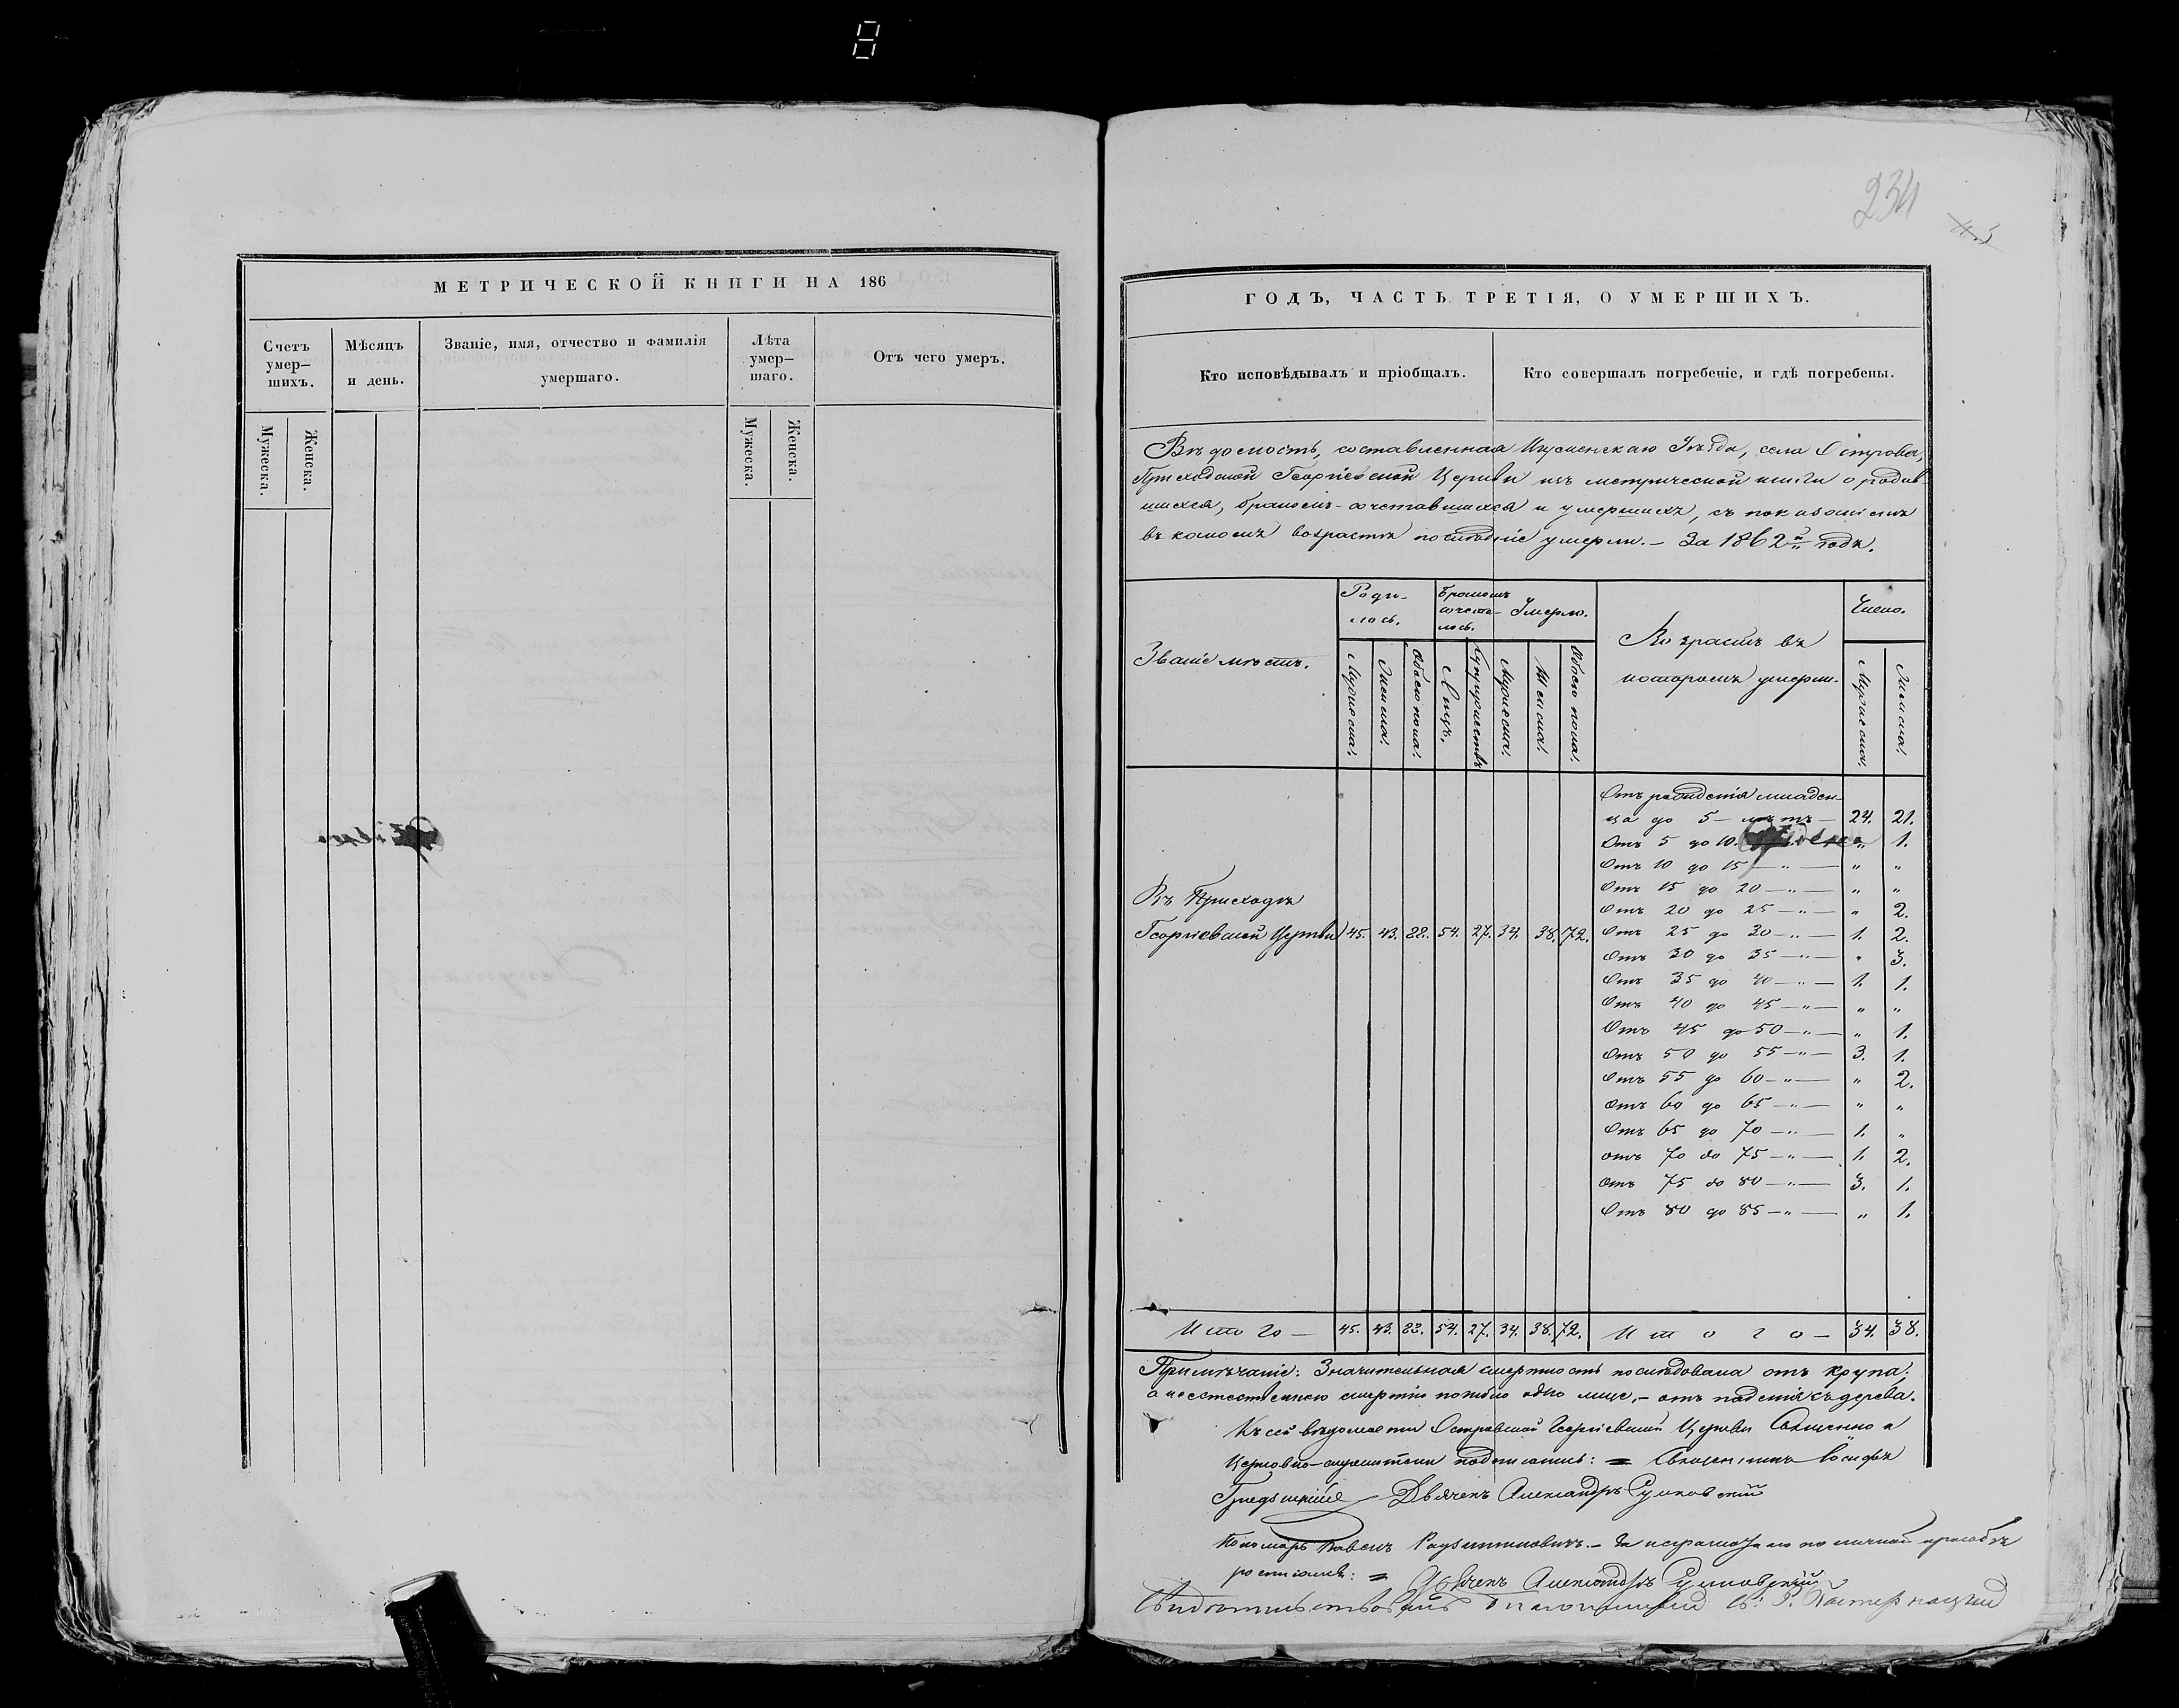 234
МЕТРИЧЕСКОЙ КНИГИ НА 186
Счетъ умер–шихъ.
Мѣсяцъ и день.
Званіе, имя, отчество и фамилія умершаго.
Лѣта умер–шаго.
Отъ чего умеръ.
Мужеска.
Женска.
Мужеска.
Женска.
ГОДЪ, ЧАСТЬ ТРЕТІЯ, О УМЕРШИХЪ.
Кто исповѣдывалъ и пріобщалъ.
Кто совершалъ погребеніе, и гдѣ погребены.
Вѣдомость, составленная Игуменскаго Уѣзда, села Острова,
Приходской Георгіевской Церкви изъ метрической книги о родив-
шихся, бракомъ-сочетавшихся и умершихъ, съ показаніемъ
въ какомъ возрастѣ послѣдніе умерли. – За 1862й годъ.
Званіе мѣстъ.
Роди-лось.
Бракомъ сочета-лось.
Умерло.
Возрастъ въ которомъ умерли.
Число.
Мужеска. Женска. Обоего пола. Лицъ. Супружествъ Мужеска. Женска. Обоего пола. Мужеска. Женска.
Отъ рожденія младен-
ца до 5 – лѣтъ – 24. 21.
Отъ 5 до 10. „ 1.
Отъ 10 до 15 – „ – „ „
Отъ 15 до 20 – „ – „ „
Отъ 20 до 25 – „ – „ 2.
Въ Приходѣ
Георгіевской Церкви 45. 43. 88. 54. 27. 34. 38. 72.
Отъ 25 до 30 – „ – 1. 2.
Отъ 30 до 35 – „ – „ 3.
Отъ 35 до 40 – „ – 1. 1.
Отъ 40 до 45 – „ – „ „
Отъ 45 до 50 – „ – „ 1.
Отъ 50 до 55 – „ – 3. 1.
Отъ 55 до 60 – „ – „ 2.
Отъ 60 до 65 – „ – „ „
Отъ 65 до 70 – „ – 1. „
Отъ 70 до 75 – „ – 1. 2.
Отъ 75 до 80 – „ – 3. 1.
Отъ 80 до 85 – „ – „ 1.
Итого – 45. 43. 88. 54. 27. 34. 38. 72. Итого – 34. 38.
Примѣчаніе: Значительная смертность послѣдовала отъ крупа;
а неестественною смертію погибло одно лице, – отъ паденія съ дерева.
Къ сей вѣдомости Островской Георгіевской Церкви Священно и
Церковно-служители подписались: = Священникъ Іосифъ
Дьячекъ Александръ Сулковскій
Пономарь Павелъ – За неграмотнаго по личной просьбѣ
росписался: = Дьячекъ Александръ Сулковскій
Свидѣтельствовалъ Благочинный